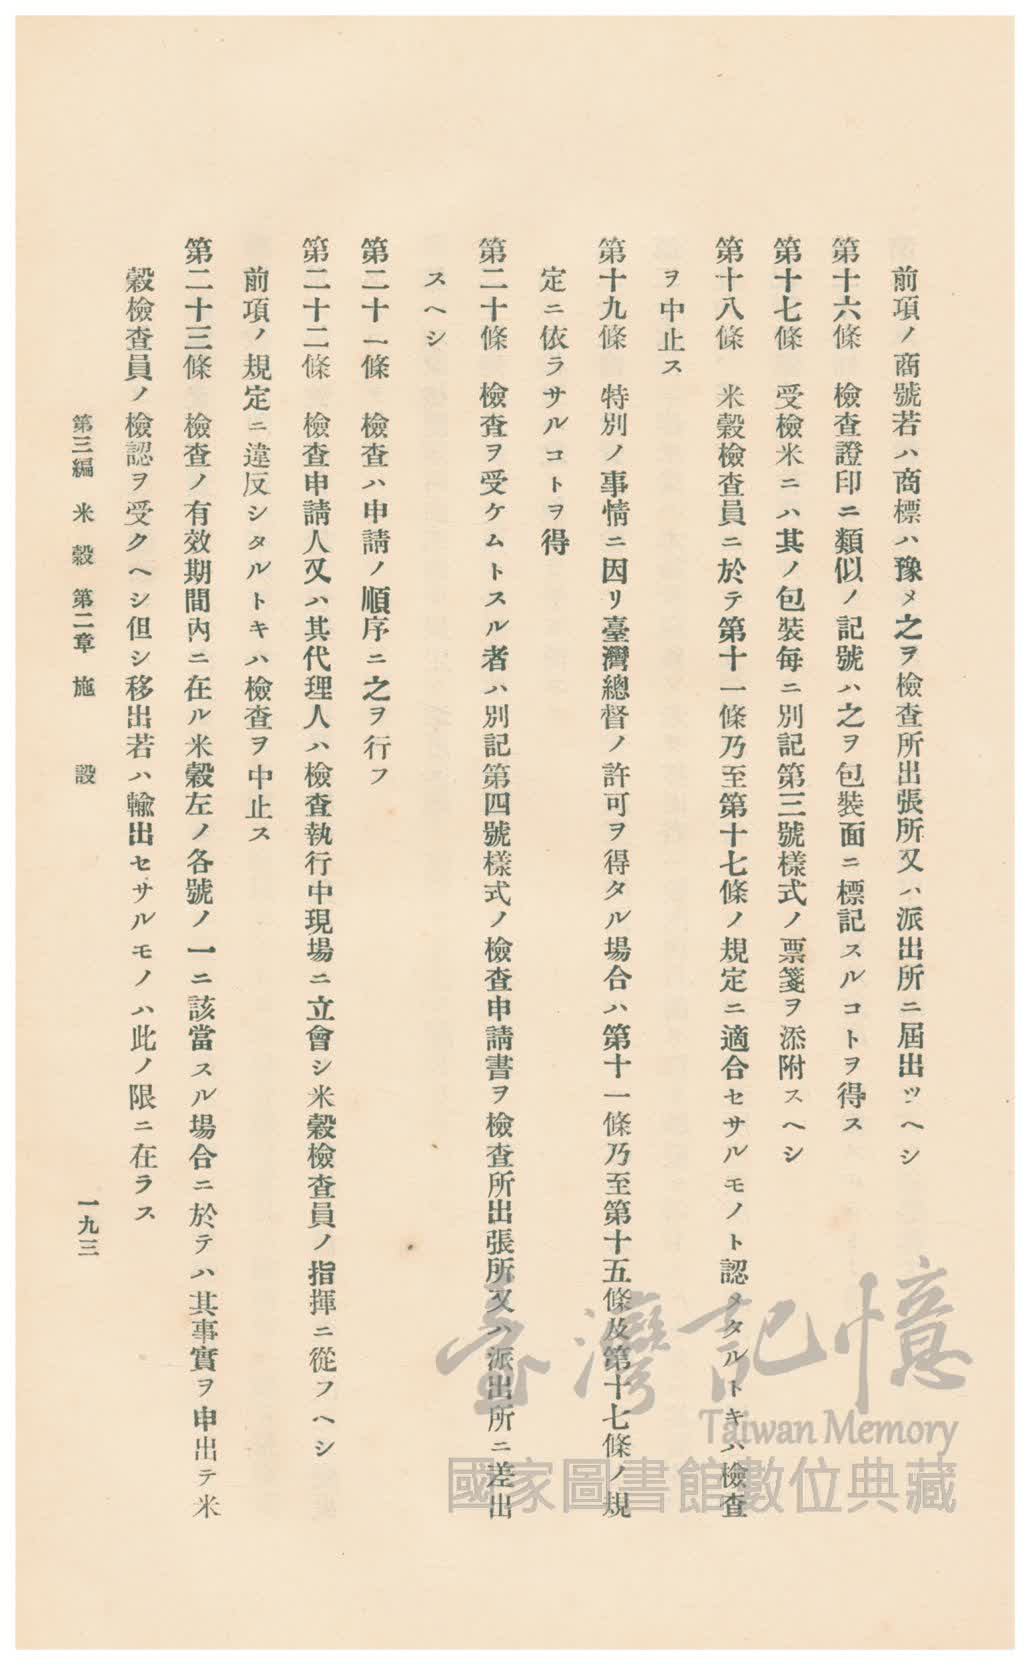 前項ノ商號若ハ商標ハ豫メ之ヲ檢查所出張所又ハ派出所ニ屆出ツヘシ
第十六條　檢查證印ニ類似ノ記號ハ之ヲ包裝面ニ標記スルコトヲ得ス
第十七條　受檢米ニハ其ノ包裝每ニ別記第三號樣式ノ票箋ヲ添附スヘシ
第十八條　米穀檢查員ニ於テ第十一條乃至第十七條ノ規定ニ適合セサルモノト認メタルトキハ檢查
ヲ中止ス
第十九條　特別ノ事情ニ因リ臺灣總督ノ許可ヲ得タル場合ハ第十一條乃至第十五條及第十七條ノ規
定ニ依ラサルコトヲ得
第二十條　檢查ヲ受ケムトスル者ハ別記第四號樣式ノ檢查申請書ヲ檢查所出張所又ハ派出所ニ差出
スヘシ
第二十一條　檢查ハ申請ノ順序ニ之ヲ行フ
第二十二條　檢查申請人又ハ其代理人ハ檢查執行中現場ニ立會シ米穀檢查員ノ指揮ニ從フヘシ
前項ノ規定ニ違反シタルトキハ檢查ヲ中止ス
第二十三條　檢查ノ有效期間內ニ在ル米穀左ノ各號ノ一ニ該當スル場合ニ於テハ其事實ヲ申出テ米
穀檢查員ノ檢認ヲ受クヘシ但シ移出若ハ輸出セサルモノハ此ノ限ニ在ラス
第三編　米穀　第二章　施設
一九三
臺灣記憶
Taiwan Memory
國家圖書館數位典藏